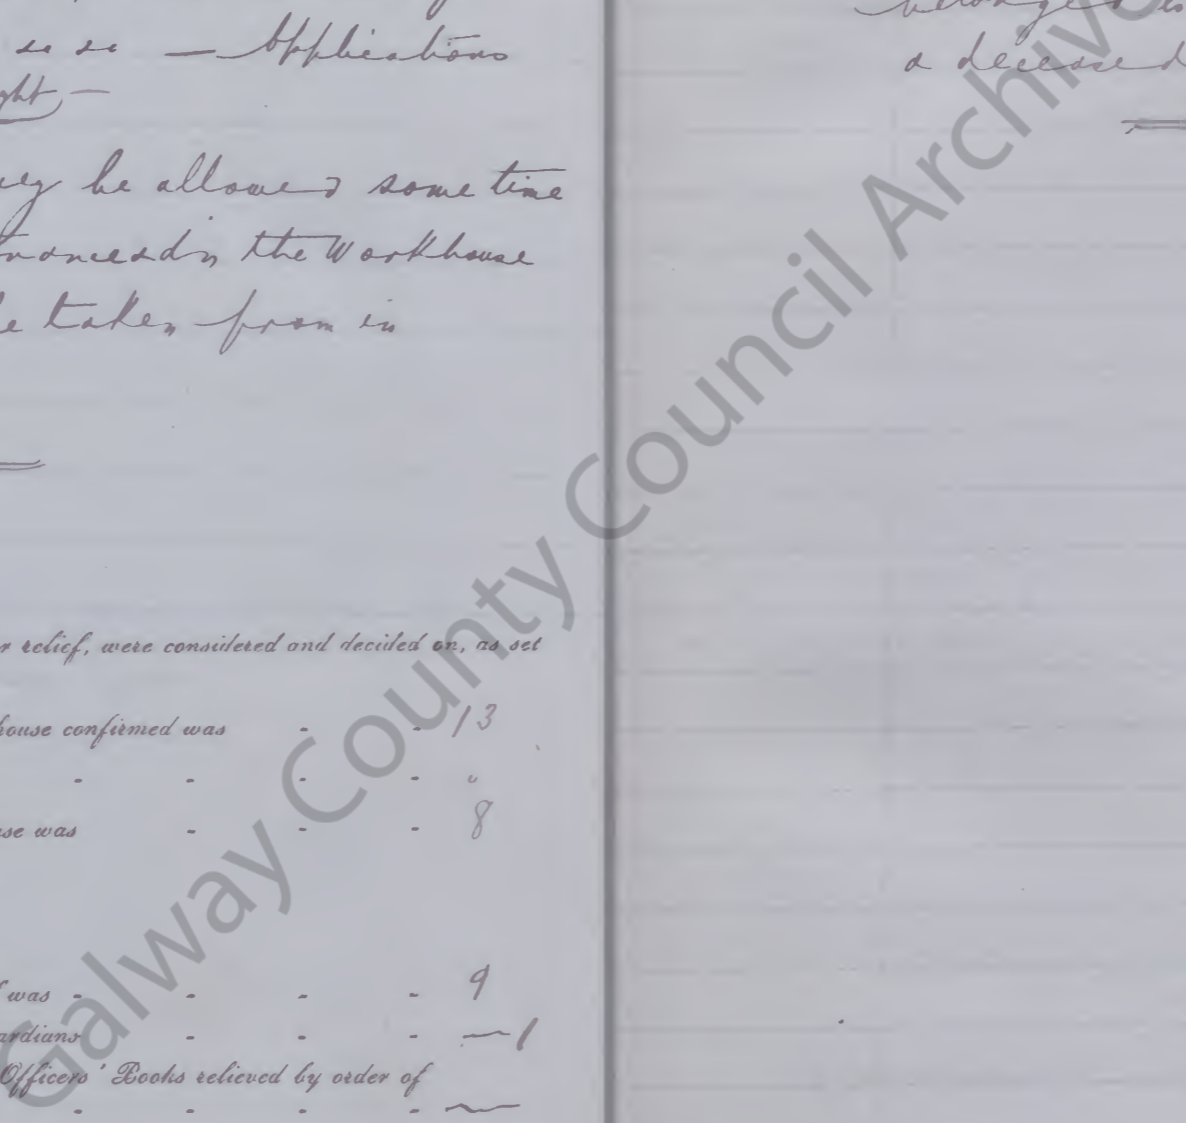 se se — Applications
ght —
be allowed some time
the Workhouse
taken from in
r relief, were considered and decided on, as set
house confirmed was - - 13
- - - - "
se was - - - 8
was - - - - 9
ardians - - - — 1
Officers' Books relieved by order of
- - - - —
belonged to
a deceased
Galway County Council Archives